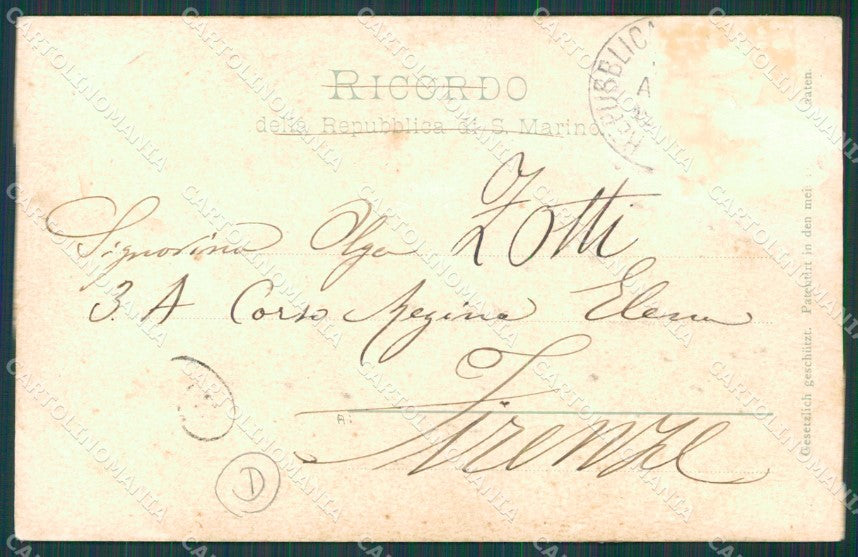 RICORDO
della Repubblica di S. Marino
REPUBBLICA
Signorina Olga Zotti
3. A Corso Regina Elena
Firenze
D
Gesetzlich geschützt. Patentirt in den mei
aaten.
CARTOLINOMANIA